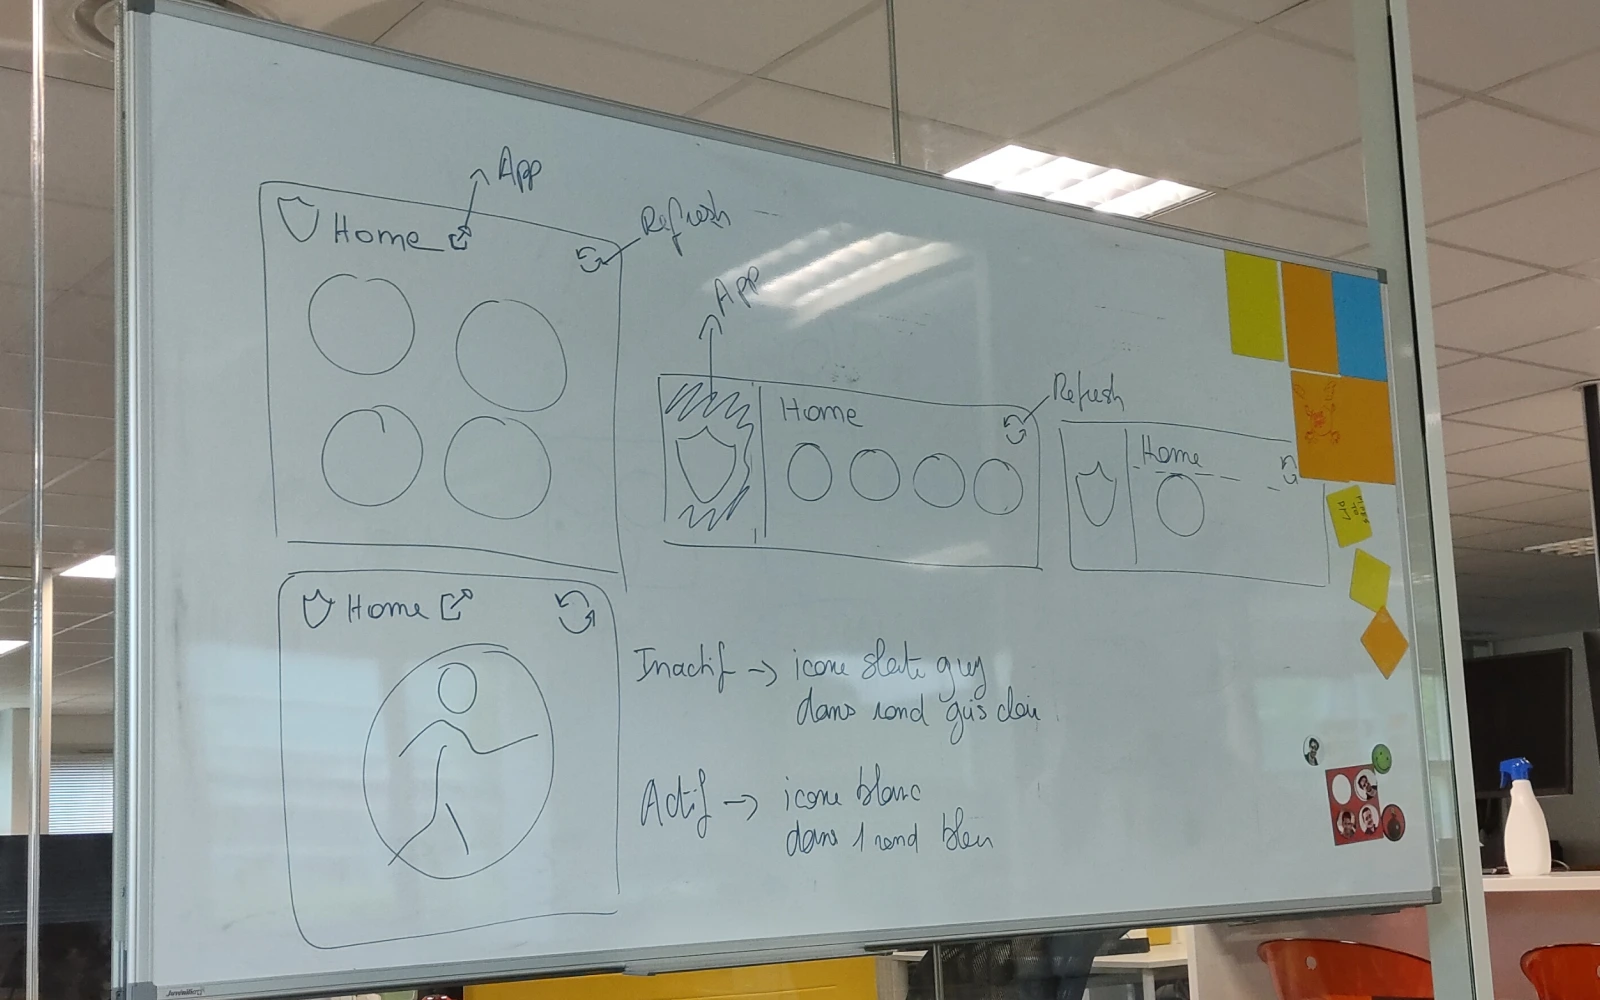 App
Home
Refresh
App
Home
Refresh
Home
Home
Inactif -> icone slate grey
dans rond gris clair
Actif -> icone blanc
dans 1 rond bleu